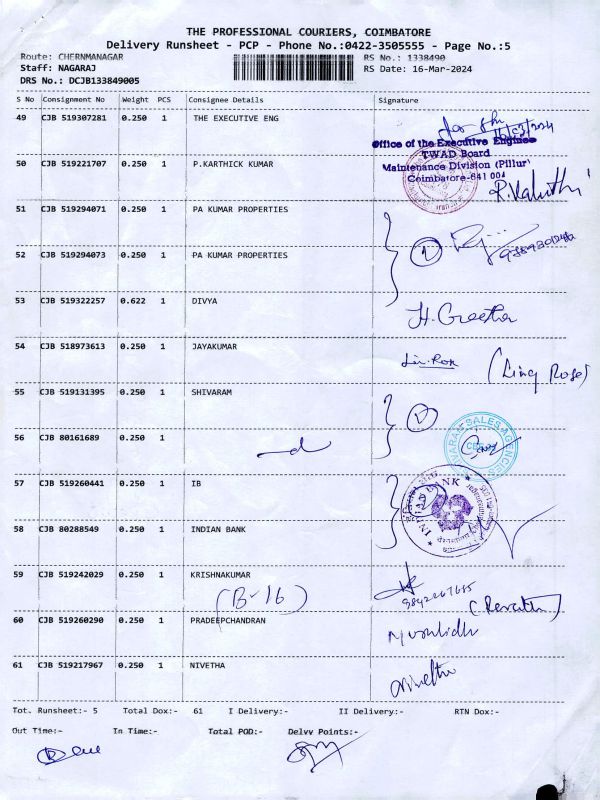 THE PROFESSIONAL COURIERS, COIMBATORE
Delivery Runsheet - PCP - Phone No.:0422-3505555 - Page No.:5
Route: CHERNMANAGAR RS No.: 1338490
Staff: NAGARAJ RS Date: 16-Mar-2024
DRS No.: DCJB133849005
S No Consignment No Weight PCS Consignee Details Signature
49 CJB 519307281 0.250 1 THE EXECUTIVE ENG
Office of the Executive Enginee
TWAD Board
50 CJB 519221707 0.250 1 P.KARTHICK KUMAR Maintenance Division (Pillur)
Coimbatore-641 004
51 CJB 519294071 0.250 1 PA KUMAR PROPERTIES
52 CJB 519294073 0.250 1 PA KUMAR PROPERTIES
53 CJB 519322257 0.622 1 DIVYA
H. Greetha
54 CJB 518973613 0.250 1 JAYAKUMAR
(Ling Rose)
55 CJB 519131395 0.250 1 SHIVARAM
56 CJB 80161689 0.250 1
SALES AGENCIES
57 CJB 519260441 0.250 1 IB
BANK
58 CJB 80288549 0.250 1 INDIAN BANK
59 CJB 519242029 0.250 1 KRISHNAKUMAR
(B-16) (Revathi)
60 CJB 519260290 0.250 1 PRADEEPCHANDRAN
61 CJB 519217967 0.250 1 NIVETHA
Nivetha
Tot. Runsheet:- 5 Total Dox:- 61 I Delivery:- II Delivery:- RTN Dox:-
Out Time:- In Time:- Total POD:- Delvv Points:-